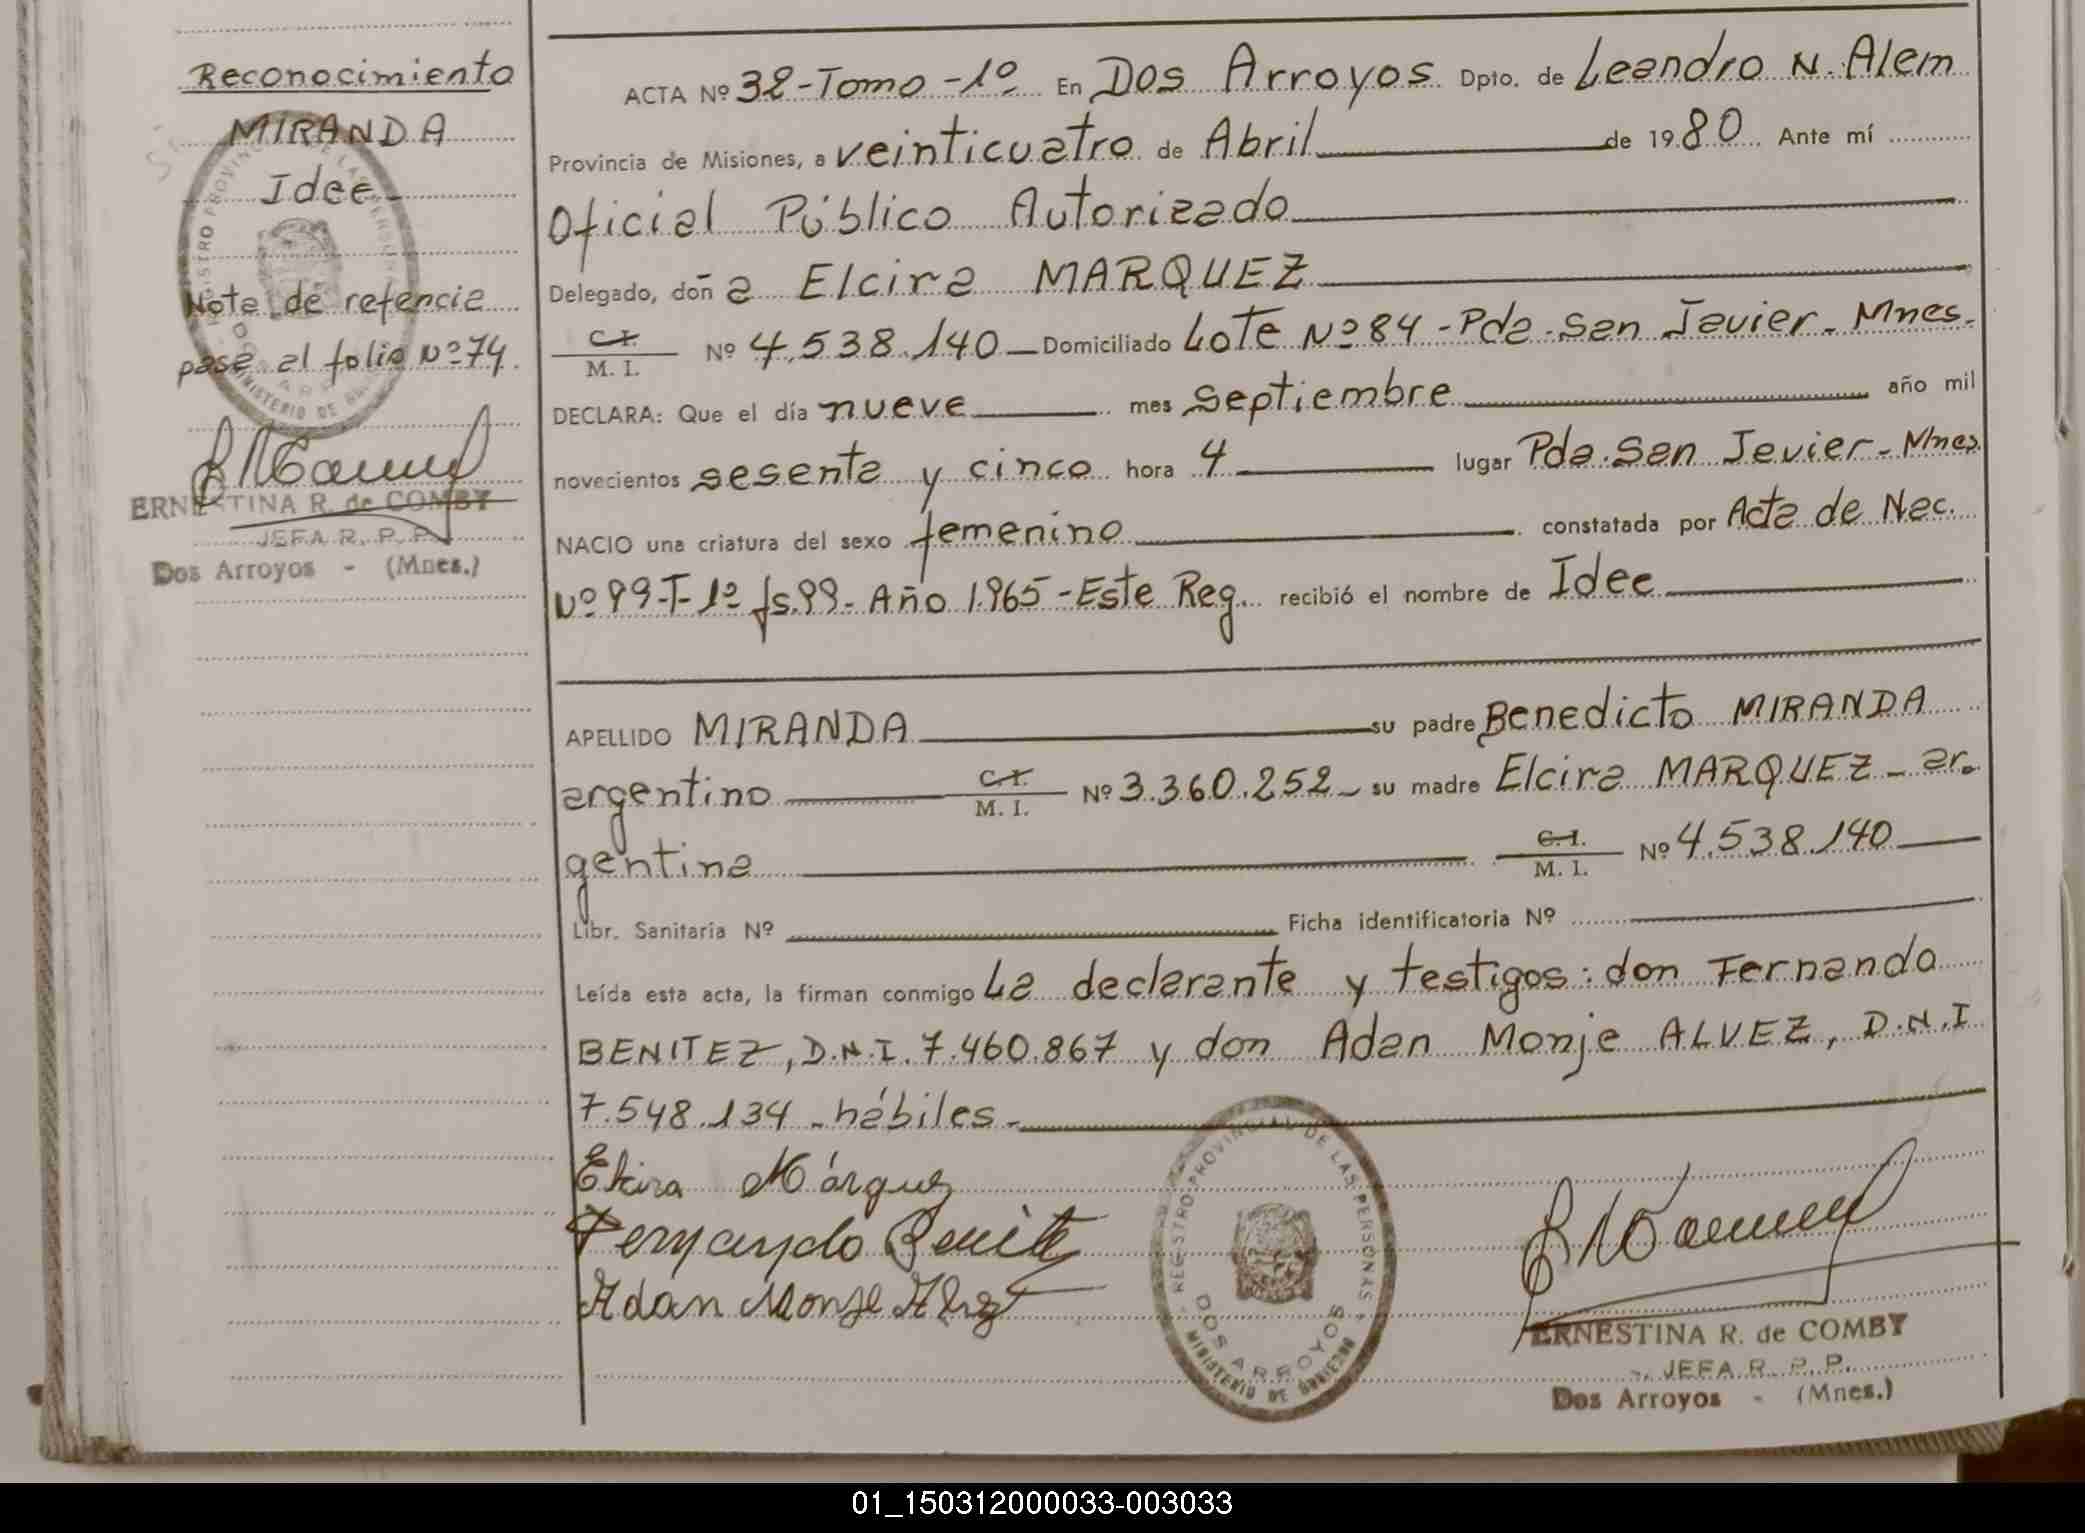 Reconocimiento
MIRANDA
Idee
Nota de refencia
pasa al folio Nº 74.
ERNESTINA R. de COMBY
JEFA R. P. P.
Dos Arroyos - (Mnes.)
ACTA Nº 32-Tomo-1º En Dos Arroyos Dpto. de Leandro N. Alem
Provincia de Misiones, a veinticuatro de Abril de 1980 Ante mí
Oficial Público Autorizado
Delegado, doña Elcira MARQUEZ
C.I.
M. I. Nº 4.538.140 Domiciliado Lote Nº 84 - Pda. San Javier - Mnes.
DECLARA: Que el día nueve mes septiembre año mil
novecientos sesenta y cinco hora 4 lugar Pda. San Javier - Mnes.
NACIO una criatura del sexo femenino constatada por Acta de Nac.
Nº 99-T-1º fs.99- Año 1.965 - Este Reg. recibió el nombre de Idee
APELLIDO MIRANDA su padre Benedicto MIRANDA
argentino C.I. M. I. Nº 3.360.252 su madre Elcira MARQUEZ - ar-
gentina C.I. M. I. Nº 4.538.140
Libr. Sanitaria Nº Ficha identificatoria Nº
Leída esta acta, la firman conmigo La declarante y testigos: don Fernando
BENITEZ, D.N.I. 7.460.867 y don Adan Monje ALVEZ, D.N.I
7.548.134 - hábiles -
Elcira Márquez
Fernando Benitez
Adan Monje Alvez
REGISTRO PROVINCIAL DE LAS PERSONAS
DOS ARROYOS
MINISTERIO DE GOBIERNO
ERNESTINA R. de COMBY
JEFA R. P. P.
Dos Arroyos - (Mnes.)
01_150312000033-003033